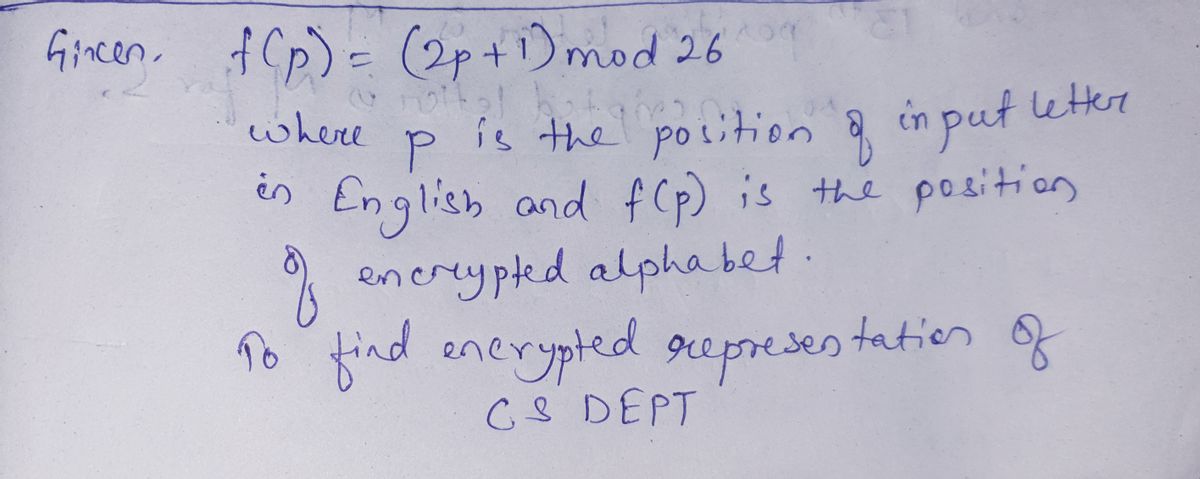 Given. f(p) = (2p+1) mod 26
where p is the position of input letter
in English and f(p) is the position
of encrypted alphabet.
To find encrypted representation of
CS DEPT